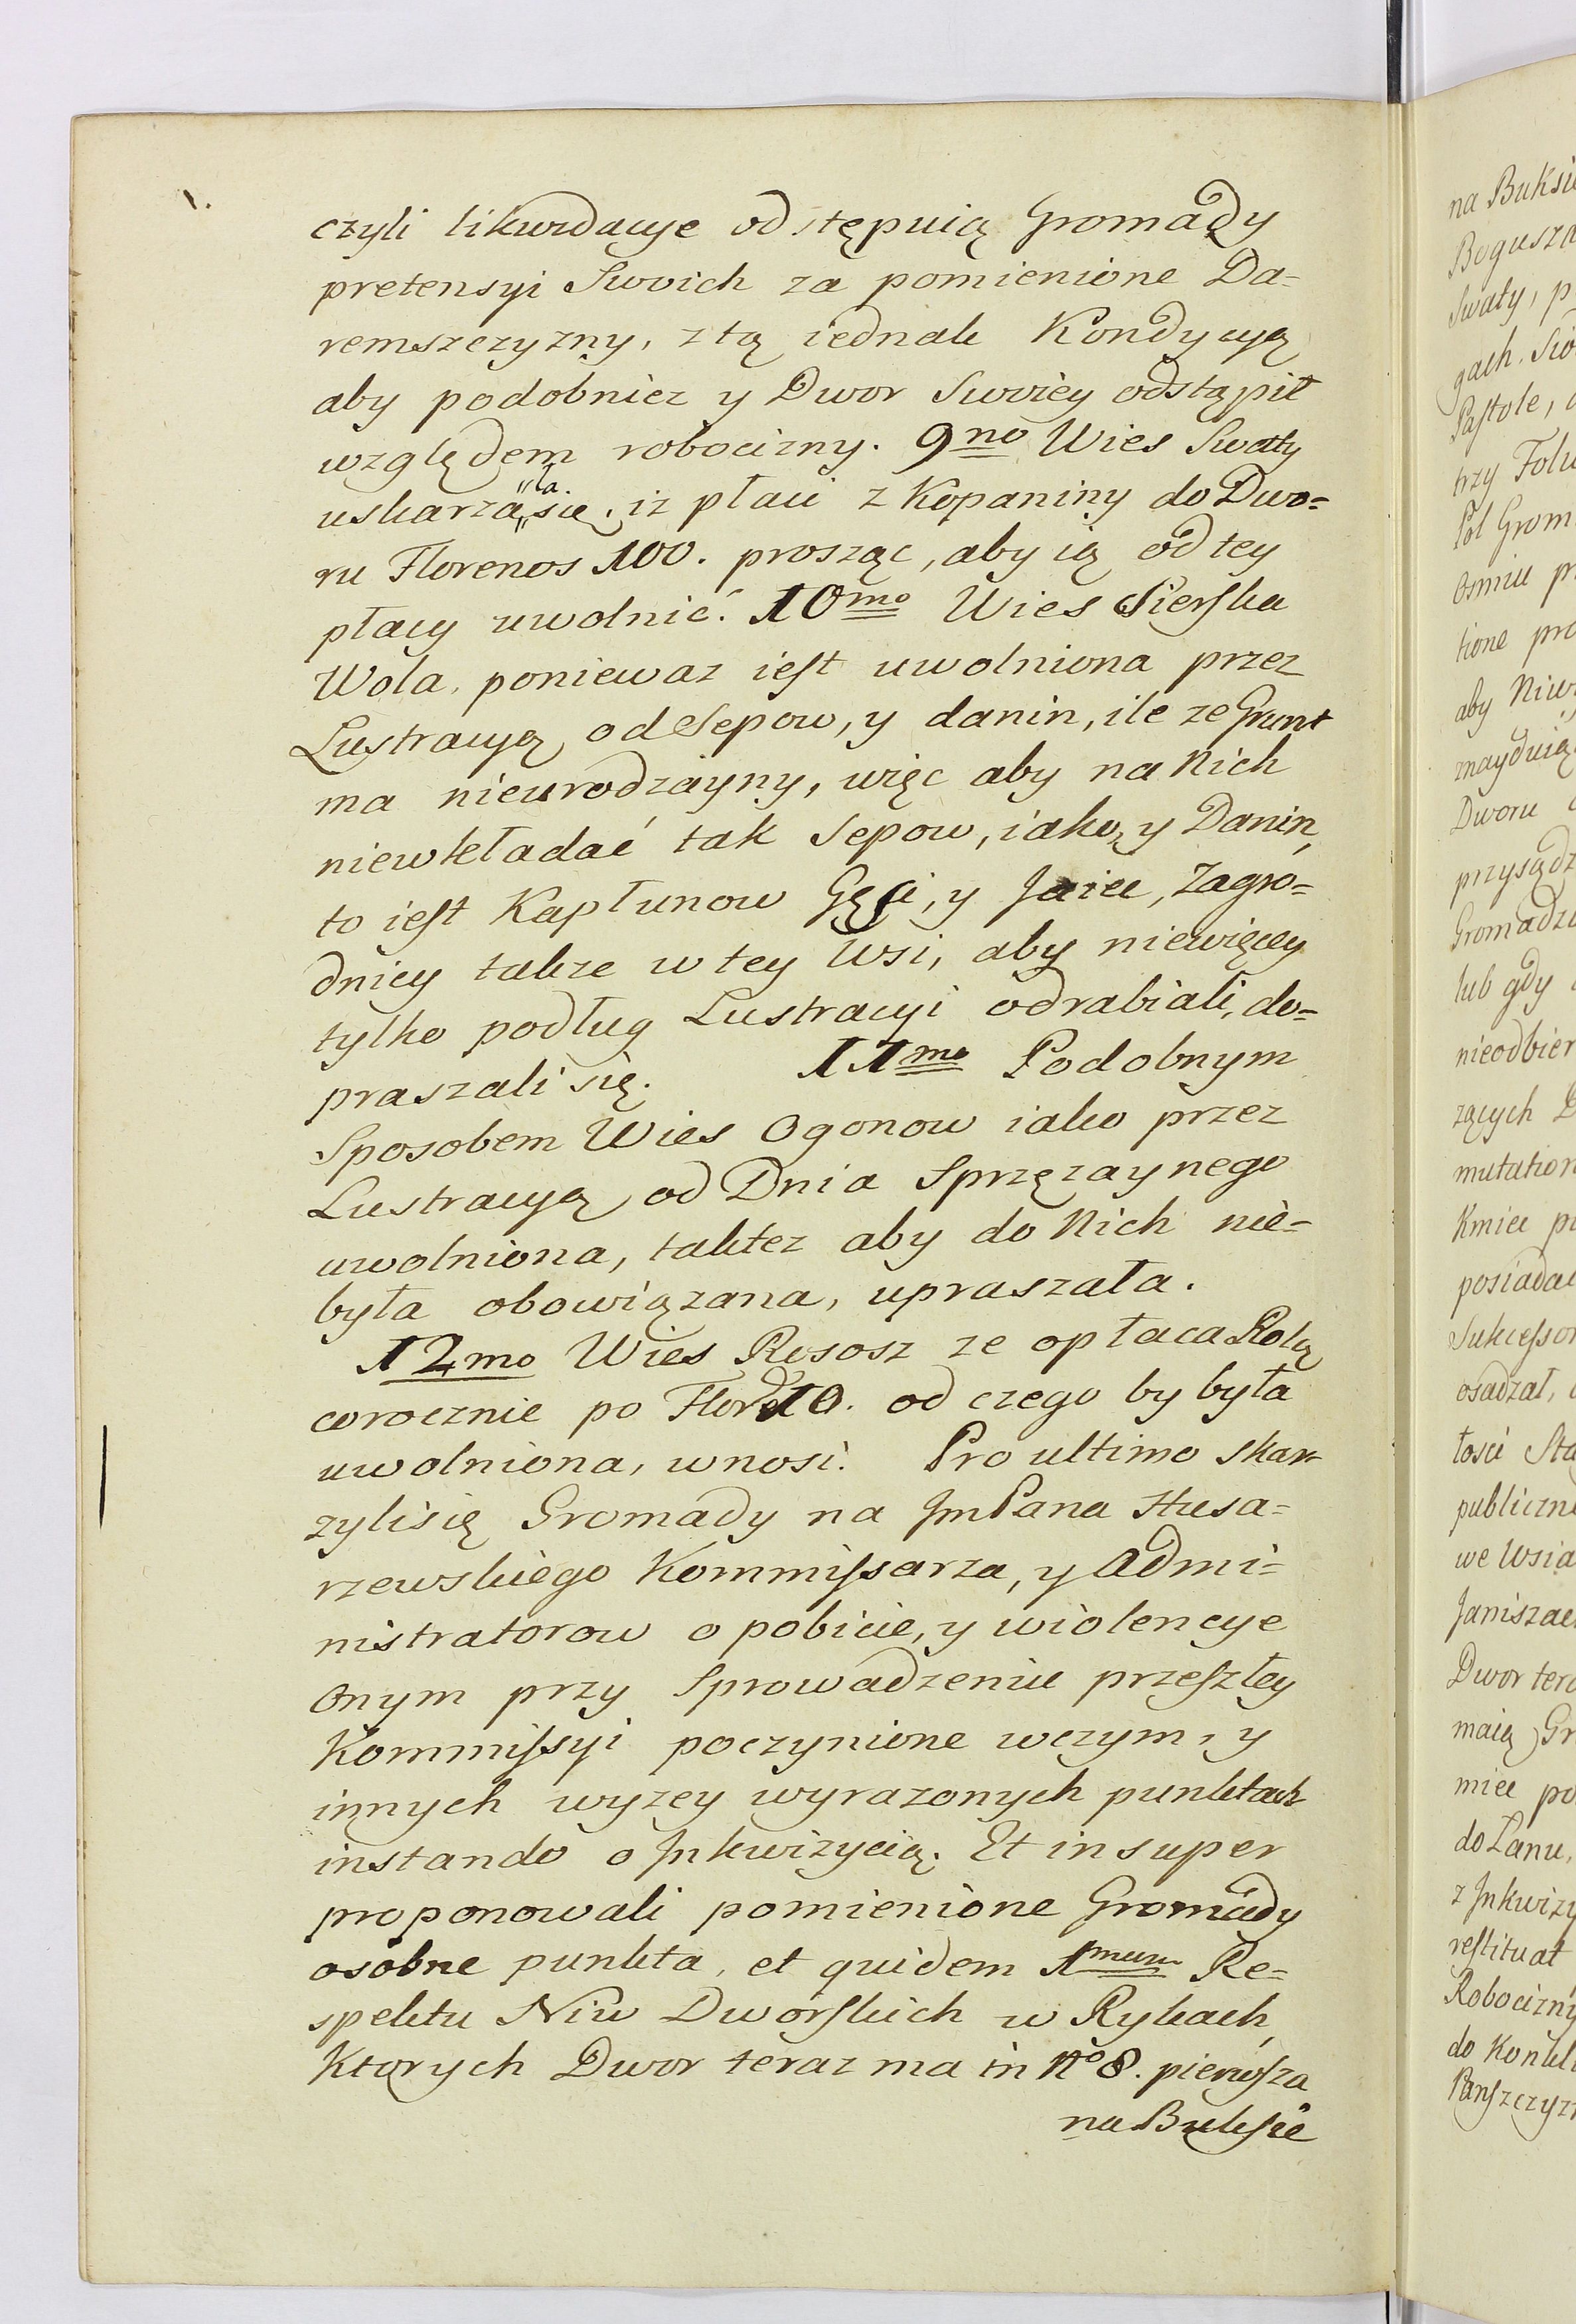 czyli likwidacye odstępuią Gromady
pretensyi Swoich za pomienione Da=
remszczyzny, z tą iednak Kondycyą
aby podobniez y Dwor Swoiey odstąpił
względem robocizny. 9no Wies Swaty
uskarzała się, iz płaci z Kopaniny do Dwo=
ru Florenos 100. prosząc, aby ią od tey
płacy uwolnić. 10mo Wies Sierska
Wola, poniewaz iest uwolniona przez
Lustracyą od Sepow, y danin, ile ze Grunt
ma nieurodzayny, więc aby na Nich
niewkładać tak Sepow, iako y Danin,
to iest Kapłunow Gęsi, y Jaiec, Zagro=
dnicy takze w tey Wsi, aby niewięcey
tylko podług Lustracyi odrabiali, do=
praszali się. 11mo Podobnym
Sposobem Wies Ogonow iako przez
Lustracyą od Dnia Sprzęzaynego
uwolniona, taktez aby do Nich nie=
była obowiązana, upraszała.
12mo Wies Rososz ze opłaca Rolą
corocznie po Flor: 10. od czego by była
uwolniona, wnosi. Pro ultimo skar=
zylisię Gromady na JmPana Husa=
rzewskiego Kommissarza, y Admi=
nistratorow o pobicie, y wiolencye
Onym przy Sprowadzeniu przeszłey
Kommissyi poczynione wczym, y
innych wyzey wyrazonych punktach
instando o Jnkwizycią. Et insuper
proponowali pomienione Gromady
osobne punkta, et quidem 1mum Re=
spektu Niw Dworskich w Rykach,
Ktorych Dwor teraz ma in No 8. pierwsza
na Buksie
na Buksie
Bogusza
Swaty, p
gach. Sio
Pastole,
trzy Folw
Pol Grom
Osmiu pr
tione pro
aby Niw
znayduią
Dworu
przysądz
Gromadz
lub gdy
nieodbier
zących D
mutation
Kmiec p
posiadac
Sukcessor
osadzał,
łosci Sta
publiczne
we Wsia
Janiszae
Dwor tera
maią Gr
miec po
do Łanu,
z Jnkwizy
restituat
Robocizny
do Konk
Panszczyz